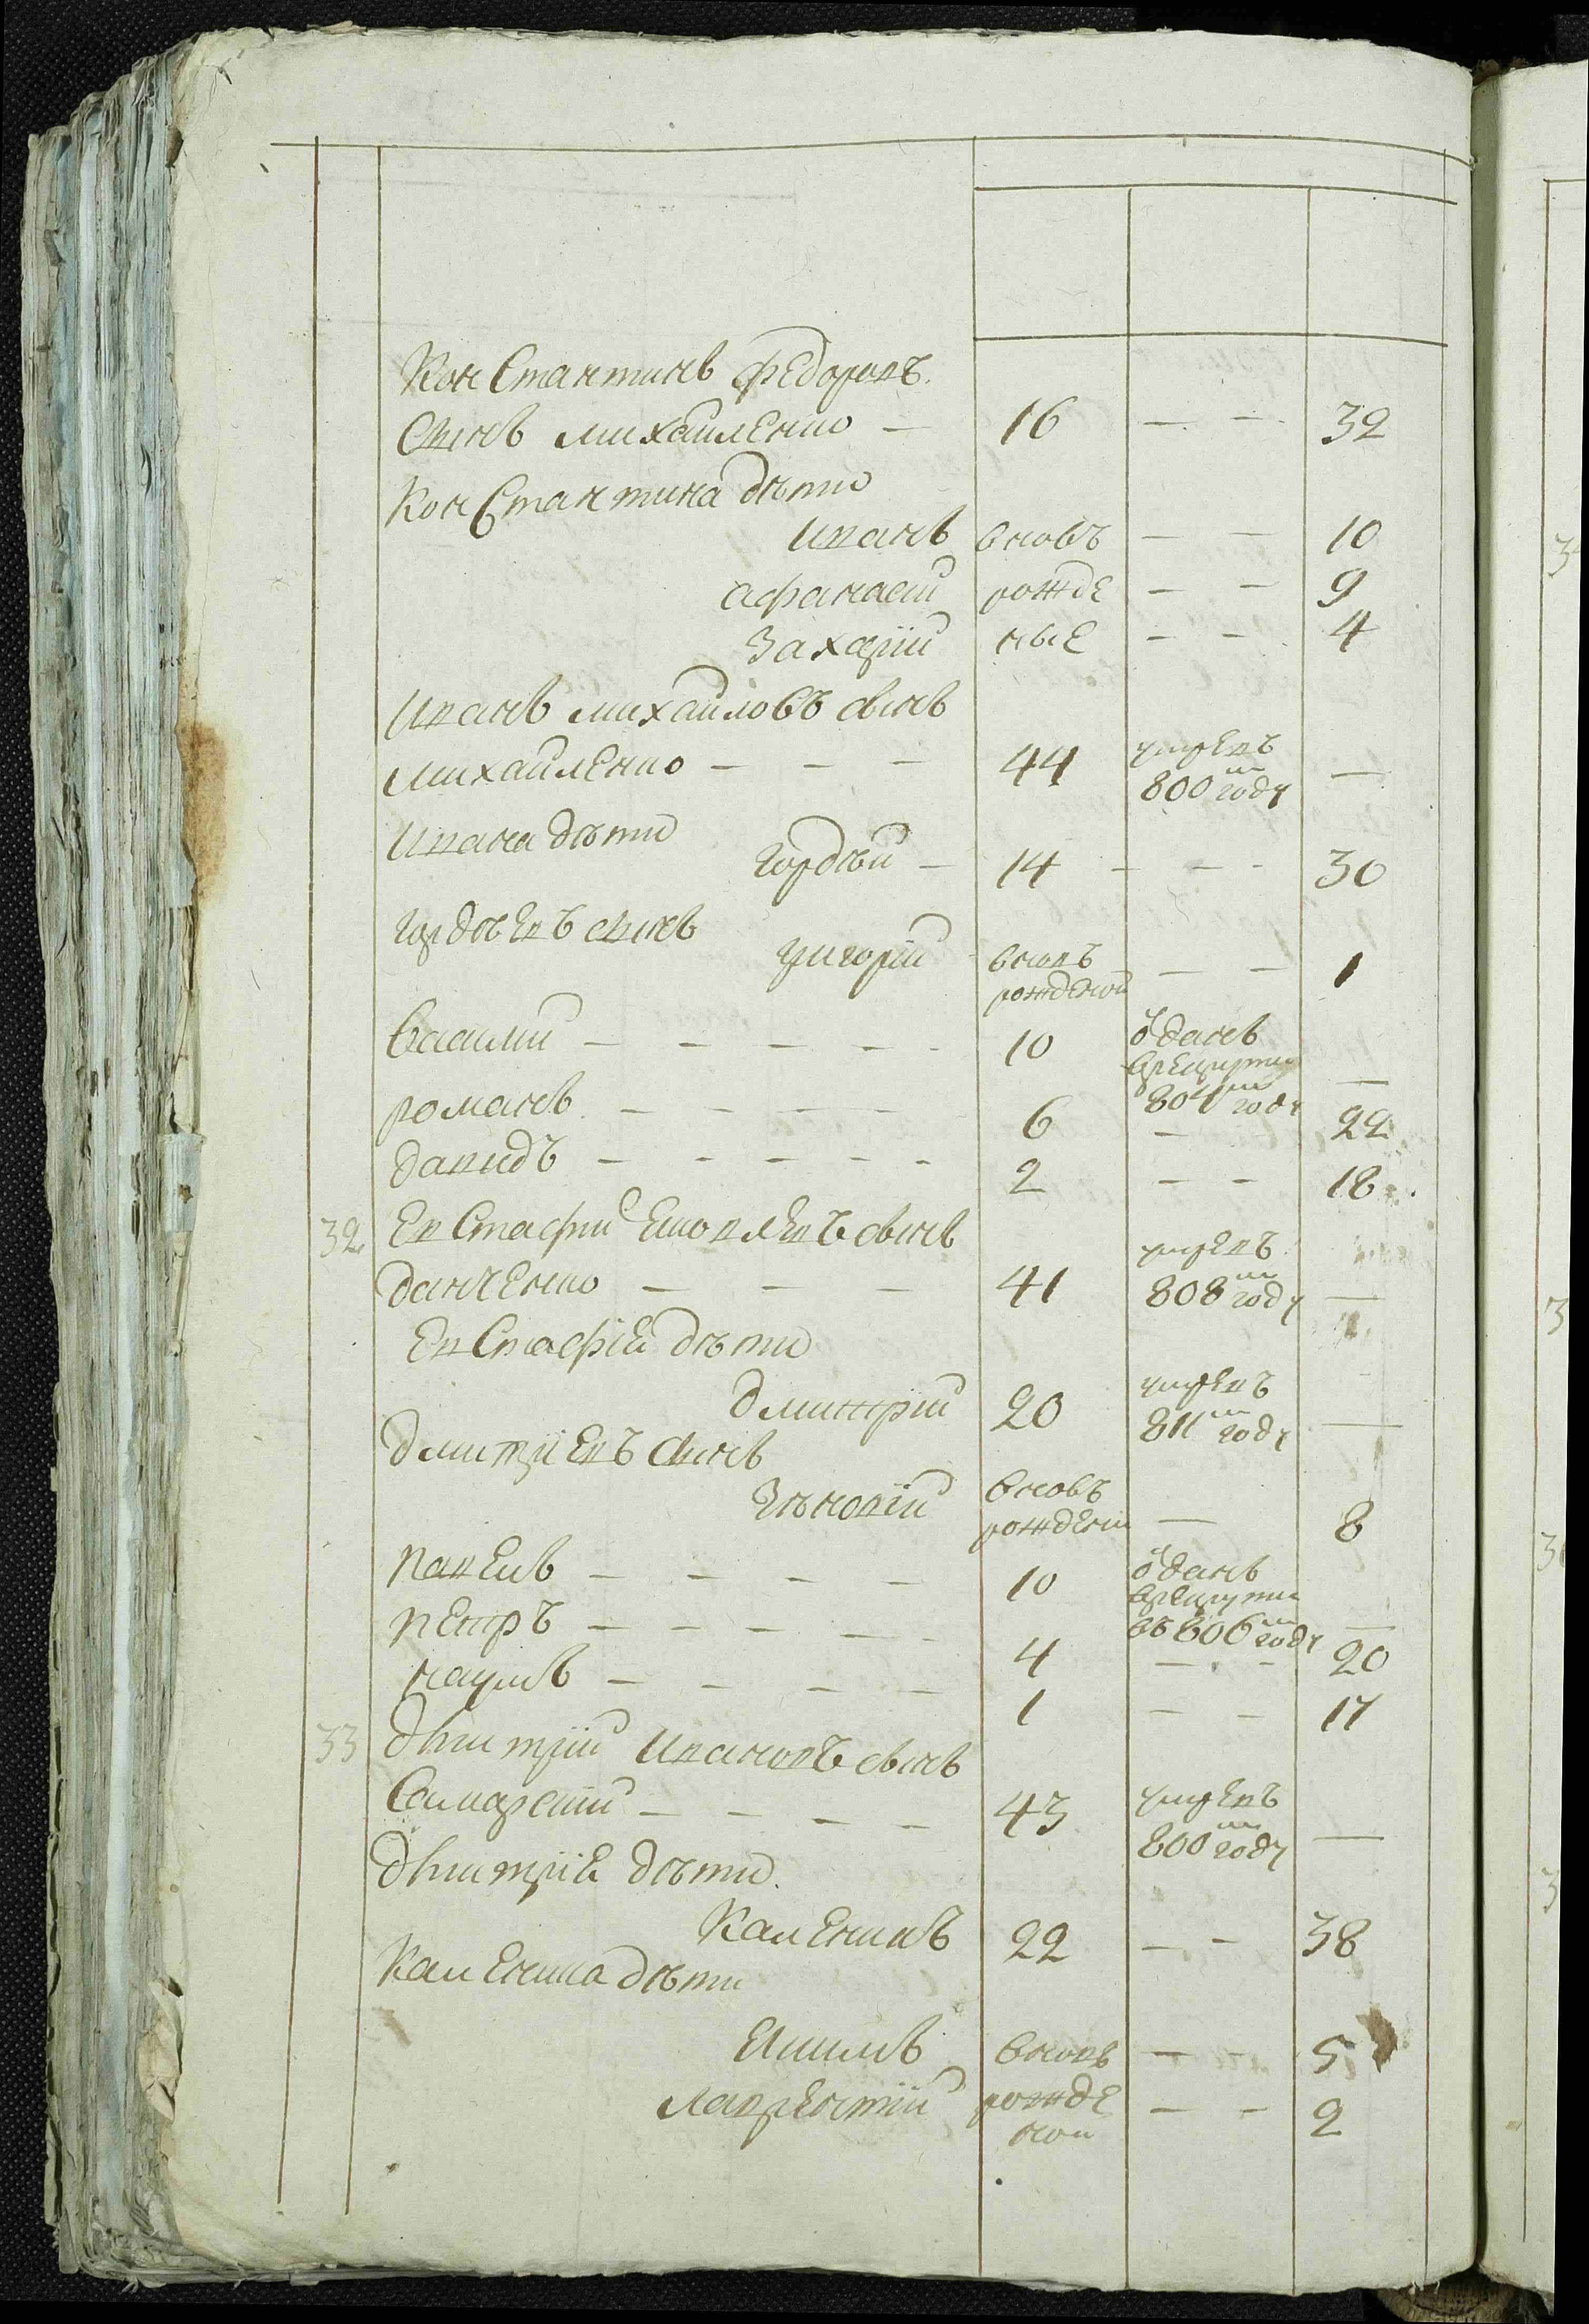 Константинъ Федоровъ
Сынъ Михайленко — 16 — — 32
Константина дѣти
Иванъ вновь — — 10
Афанасий рожде — — 9
Захарїй ные — — 4
Иванъ Михайловъ сынъ
Михайленко — — — 44 умревъ 800м году —
Ивана дѣти
Гордѣй — 14 — — — 30
Гордѣевъ сынъ
Григорїй вновь рожденой — — 1
Василий — — — — — 10 ѿданъ врекруты 804м году —
Романъ — — — — 6 — 22
Давидъ — — — — — 2 — — 18
32 Евстафий Яковлевъ сынъ
Данченко — — — 41 умревъ 808м году —
Евстафїя дѣти
Дмитрий 20 умревъ 811м году —
Дмитриевъ сынъ
Зѣновїй вновь рождений — 8
Павелъ — — — — 10 ѿданъ врекруты въ 806м году —
Петръ — — — — — 4 — — 20
Наумъ — — — — 1 — — 17
33 Дмитрїй Ивановъ сынъ
Самарский — — — — 43 умревъ 800м году —
Дмитрїя дѣти
Каленикъ 22 — — 38
Каленика дѣти
Якимъ вновь — — 5
Лаврентїй рожде ной — — 2